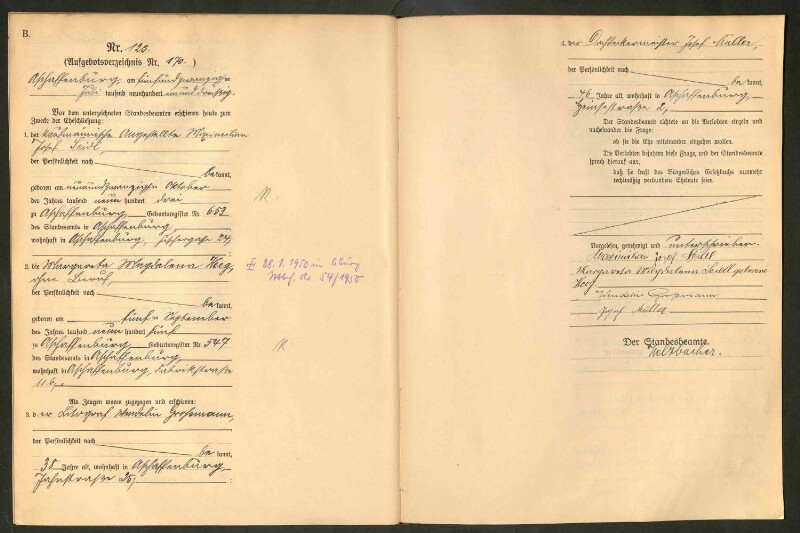 B.
Nr. 125.
(Aufgebotsverzeichnis Nr. 170.)
Aschaffenburg, am fünfundzwanzig=
Juli tausend neunhundert einunddreißig.
Vor dem unterzeichneten Standesbeamten erschienen heute zum
Zwecke der Eheschließung:
1. der kaufmännische Angestellte Maximilian
Josef Seidl,
der Persönlichkeit nach
bekannt,
geboren am neunundzwanzigsten Oktober
des Jahres tausend neun hundert drei
zu Aschaffenburg, Geburtsregister Nr. 653
des Standesamts in Aschaffenburg,
wohnhaft in Aschaffenburg, Fischergasse 24;
2. die Margareta Magdalena
ohne Beruf
der Persönlichkeit nach
bekannt,
geboren am fünf= September
des Jahres tausend neun hundert fünf
zu Aschaffenburg, Geburtsregister Nr. 547
des Standesamts in Aschaffenburg,
wohnhaft in Aschaffenburg, Fabrikstraße
11
28.1.1950 in
Nr. 54/1950
Als Zeugen waren zugezogen und erschienen:
3. der Litograf Wendelin Großmann,
der Persönlichkeit nach
bekannt,
38 Jahre alt, wohnhaft in Aschaffenburg,
Jahnstraße 25;
4. der Dachdeckermeister Josef Müller,
der Persönlichkeit nach
bekannt,
46 Jahre alt, wohnhaft in Aschaffenburg,
Heinsestraße 2,
Der Standesbeamte richtete an die Verlobten einzeln und
nacheinander die Frage:
ob sie die Ehe miteinander eingehen wollen.
Die Verlobten bejahten diese Frage, und der Standesbeamte
sprach hierauf aus,
daß sie kraft des Bürgerlichen Gesetzbuchs nunmehr
rechtmäßig verbundene Eheleute seien.
Vorgelesen, genehmigt und unterschrieben.
Maximilian Josef Seidl
Margareta Magdalena Seidl geborene
Wendelin Großmann
Josef Müller
Der Standesbeamte.